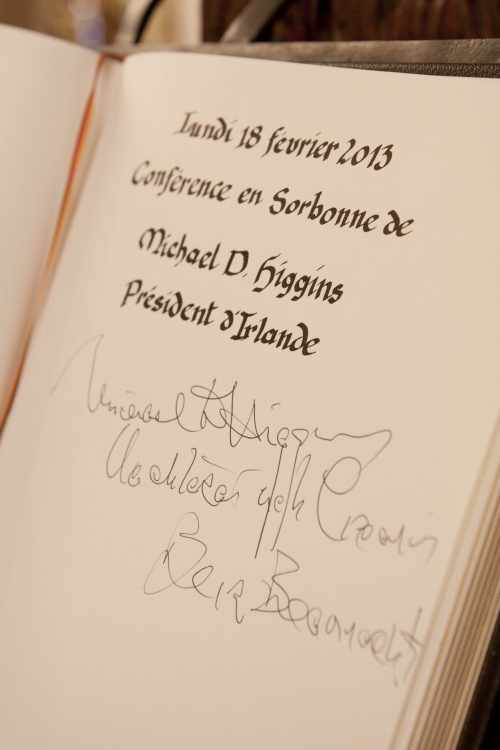 Lundi 18 février 2013
Conférence en Sorbonne de
Michael D. Higgins
Président d'Irlande
Michael D Higgins
Uachtarán na hÉireann
Beir Beannacht